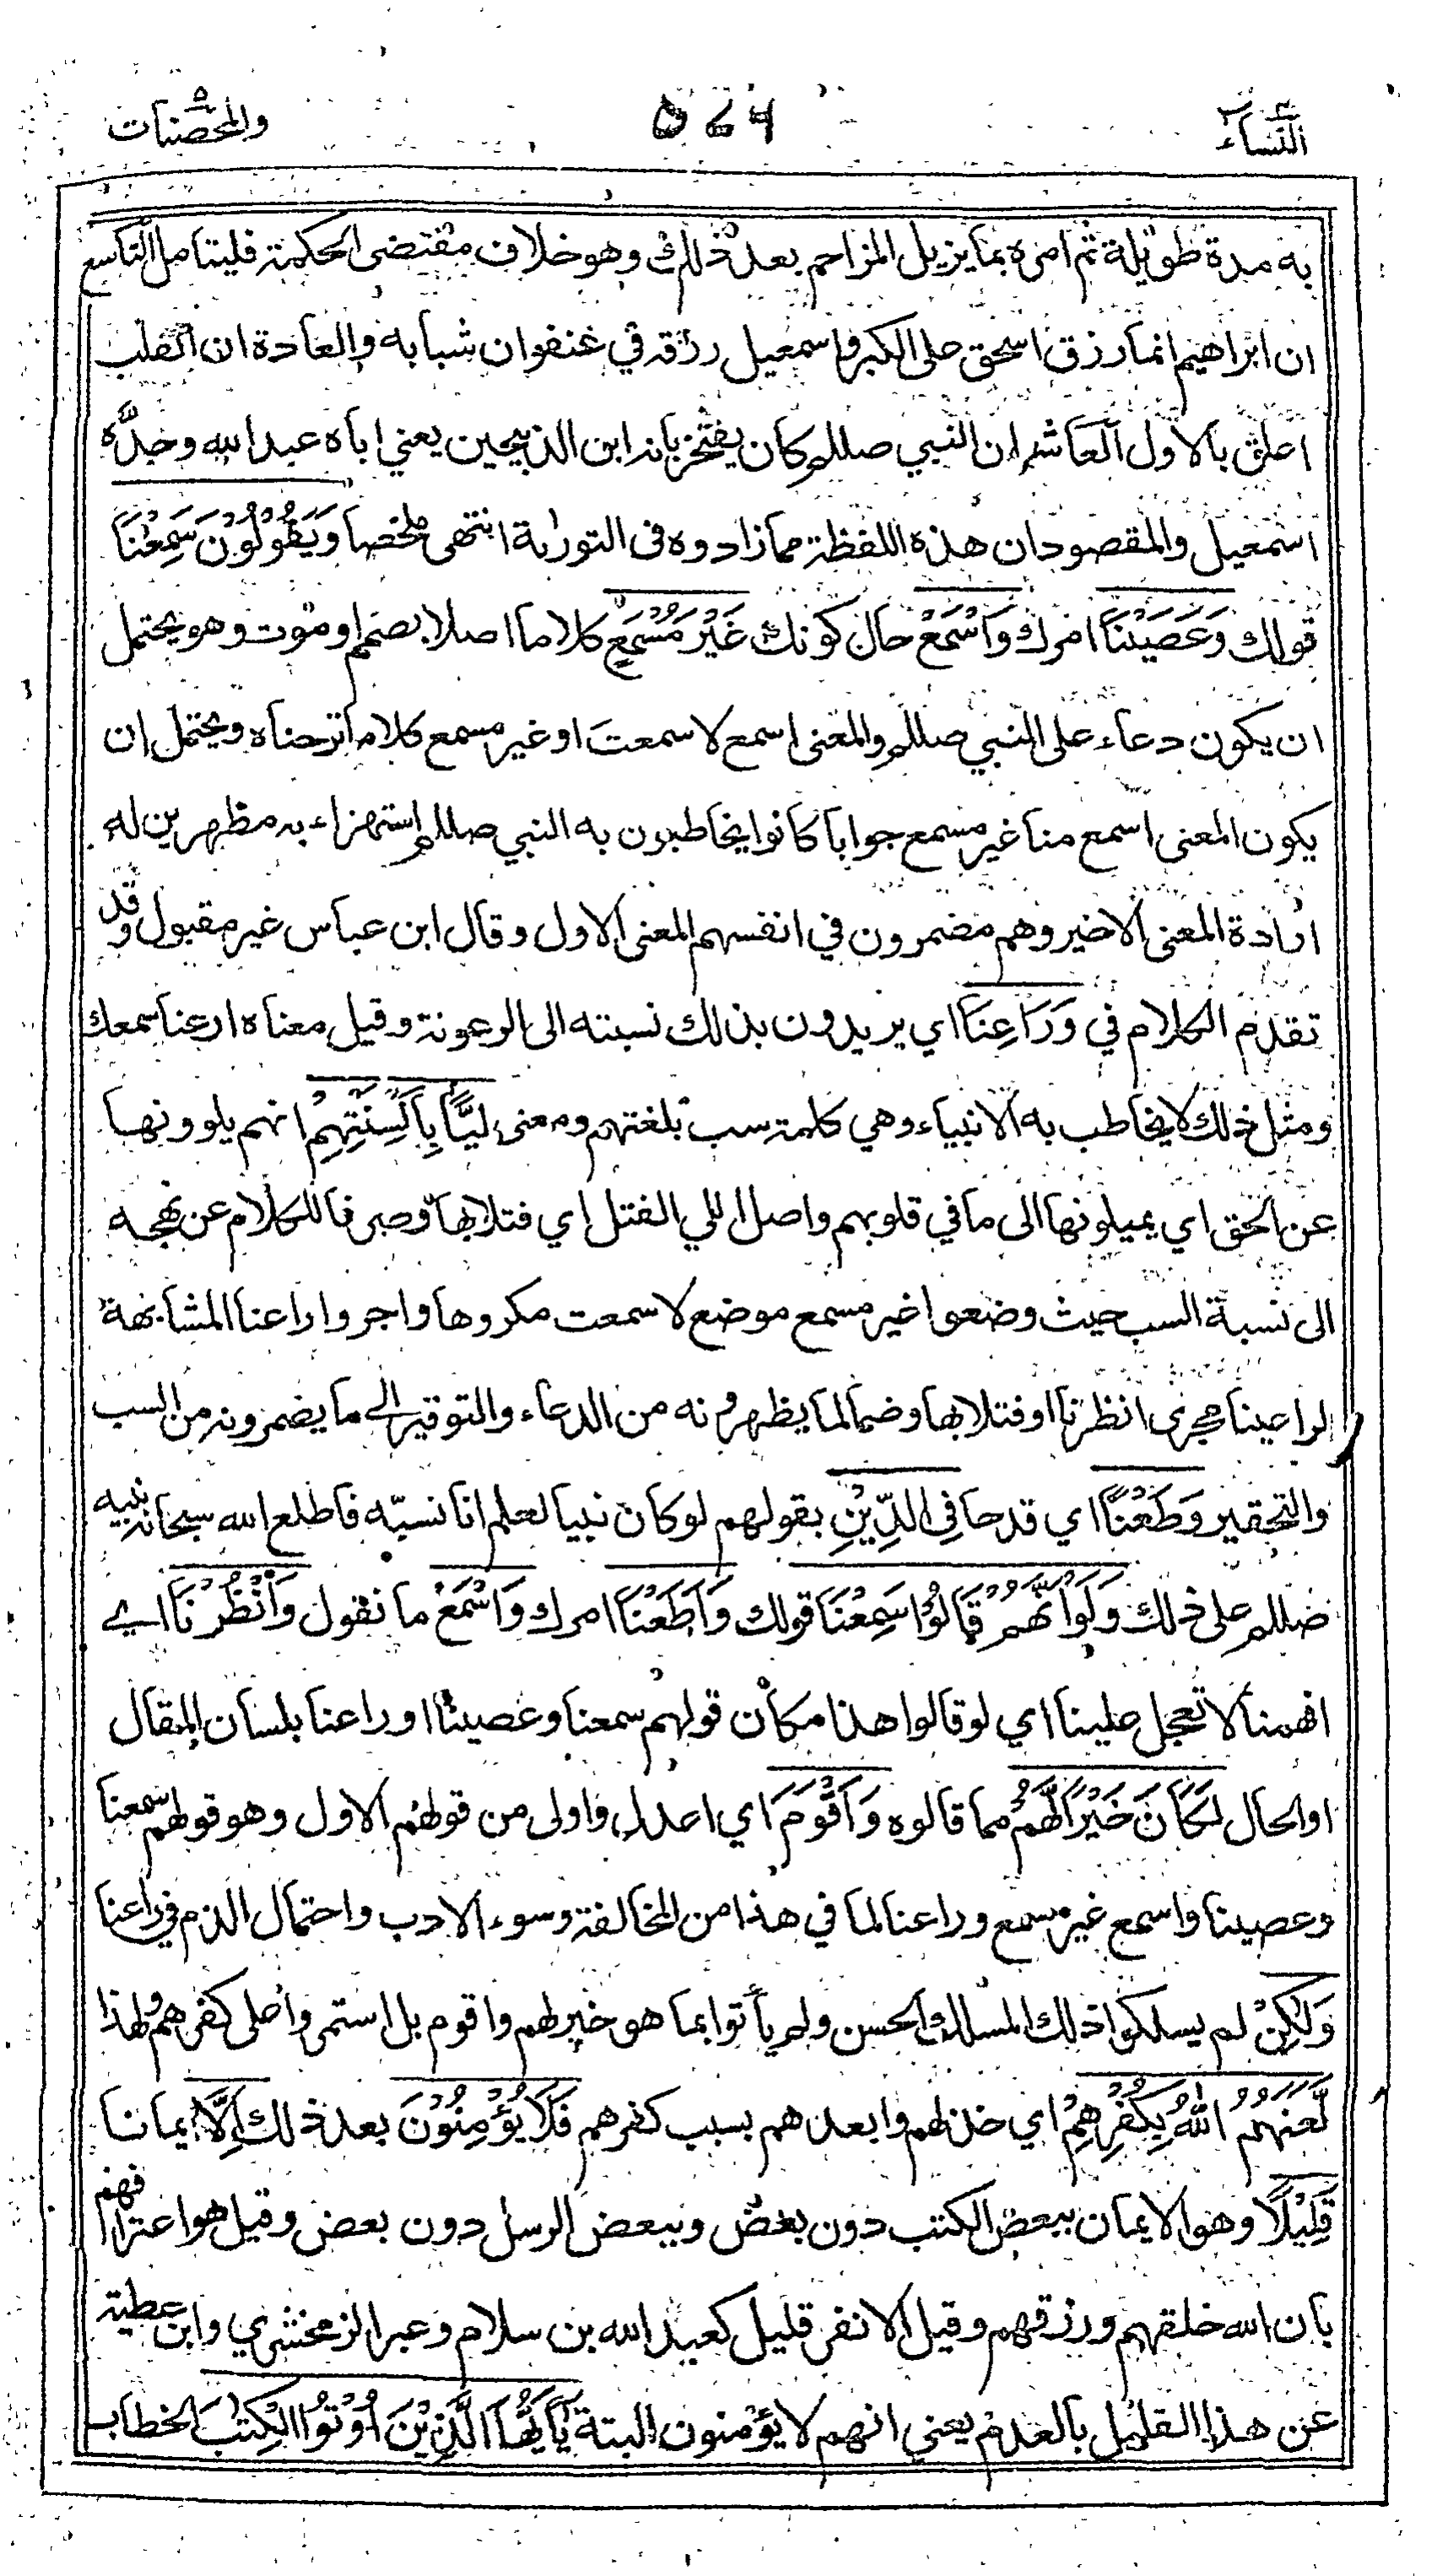 النساء ٤
والمحصنات ٥
به مدة طويلة ثم امره بما يزيل المزاحم بعد ذلك وهو خلاف مقتضى الحكمة فليتامل التاسع
ان ابراهيم انما رزق اسحق على الكبر واسمعيل رزقه في عنفوان شبابه والعادة ان القلب
اعلق بالاول العاشر ان النبي صللم كان يفتخر بانه ابن الذبيحين يعني اباه عبد الله وجدّه
اسمعيل والمقصود ان هذه اللفظة مما زادوه فى التورىة انتهى ملخصا وَيَقُوْلُوْنَ سَمِعْنَا
قولك وَعَصَيْنَا امرك وَاسْمَعْ حال كونك غَيْرَ مُسْمَعٍ كلاما اصلا بصمم او موت وهو يحتمل
ان يكون دعاء على النبي صللم والمعنى اسمع لا سمعتَ او غير مسمع كلاما ترضاه ويحتمل ان
يكون المعنى اسمع منا غير مسمع جوابا كانوا يخاطبون به النبي صللم استهزاء به مظهرين له
ارادة المعنى الاخير وهم مضمرون في انفسهم المعنى الاول وقال ابن عباس غير مقبول وقد
تقدم الكلام في وَرَاعِنَا اي يريدون بذلك نسبته الى الرعونة وقيل معناه ارعنا سمعك
ومثل ذلك لا يخاطب به الانبياء وهي كلمة سب بلغتهم ومعنى لَيًّا بِأَلْسِنَتِهِمْ انهم يلوونها
عن الحق اي يميلونها الى ما في قلوبهم واصل اللي الفتل اي فتلا بها وصرفا للكلام عن نهجه
الى نسبة السب حيث وضعوا غير مسمع موضع لا سمعت مكروها واجروا راعنا المشابهة
لراعينا مجرى انظرنا او فتلا بها وضما لما يظهرونه من الدعاء والتوقير الى ما يضمرونه من السب
والتحقير وَطَعْنًا اي قدحا فِي الدِّيْنِ بقولهم لو كان نبيا لعلم انا نسبّه فاطلع الله سبحانه نبيه
صللم على ذلك وَلَوْ اَنَّهُمْ قَالُوْا سَمِعْنَا قولك وَاَطَعْنَا امرك وَاسْمَعْ ما نقول وَانْظُرْنَا اي
افهمنا لا تعجل علينا اي لو قالوا هذا مكان قولهم سمعنا وعصينا او راعنا بلسان المقال
او الحال لَكَانَ خَيْرًا لَّهُمْ مما قالوه وَاَقْوَمَ اي اعدل واولى من قولهم الاول وهو قولهم سمعنا
وعصينا واسمع غير مسمع وراعنا لما في هذا من المخالفة وسوء الادب واحتمال الذم في راعنا
وَلٰكِنْ لم يسلكوا ذلك المسلك الحسن ولم يأتوا بما هو خير لهم واقوم بل استمروا على كفرهم ولهذا
لَّعَنَهُمُ اللّٰهُ بِكُفْرِهِمْ اي خذلهم وابعدهم بسبب كفرهم فَلَا يُؤْمِنُوْنَ بعد ذلك اِلَّا ايمانا
قَلِيْلًا وهو الايمان ببعض الكتب دون بعض وببعض الرسل دون بعض وقيل هو اعترافهم
بان الله خلقهم ورزقهم وقيل الا نفر قليل كعبد الله بن سلام وعبر الزمخشري وابن عطية
عن هذا القليل بالعدم يعني انهم لا يؤمنون البتة يٰاَيُّهَا الَّذِيْنَ اُوْتُوا الْكِتٰبَ الخطاب